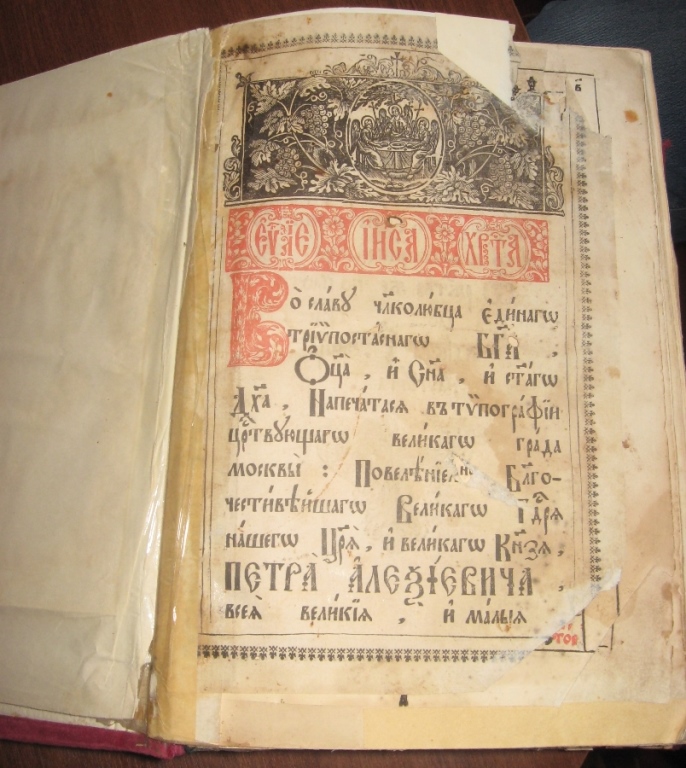 б
ЕѴⷢ҇лїе І҆и҃са Хрⷭ҇та
Во̀ сла́ву чл҃колю́бца є҆ди́нагѡ
в̾ трїѵпоста́снагѡ бг҃а,
Ѻ҆ц҃а̀, и҆ Сн҃а, и҆ ст҃а́гѡ
Дх҃а, Напеча́тасѧ въ тѵпогра́фїи
црⷭ҇твующагѡ вели́кагѡ гра́да
москвы̀: Повелѣ́нїемъ Бл҃го-
чести́вѣйшагѡ Вели́кагѡ Гдⷭ҇рѧ
на́шегѡ Цр҃ѧ̀, и҆ вели́кагѡ Кн҃зѧ,
ПЕТРА̀ А҆ЛЕѮІ́ЕВИЧА,
всеѧ̀ вели́кїѧ, и҆ ма́лыѧ
тов
а